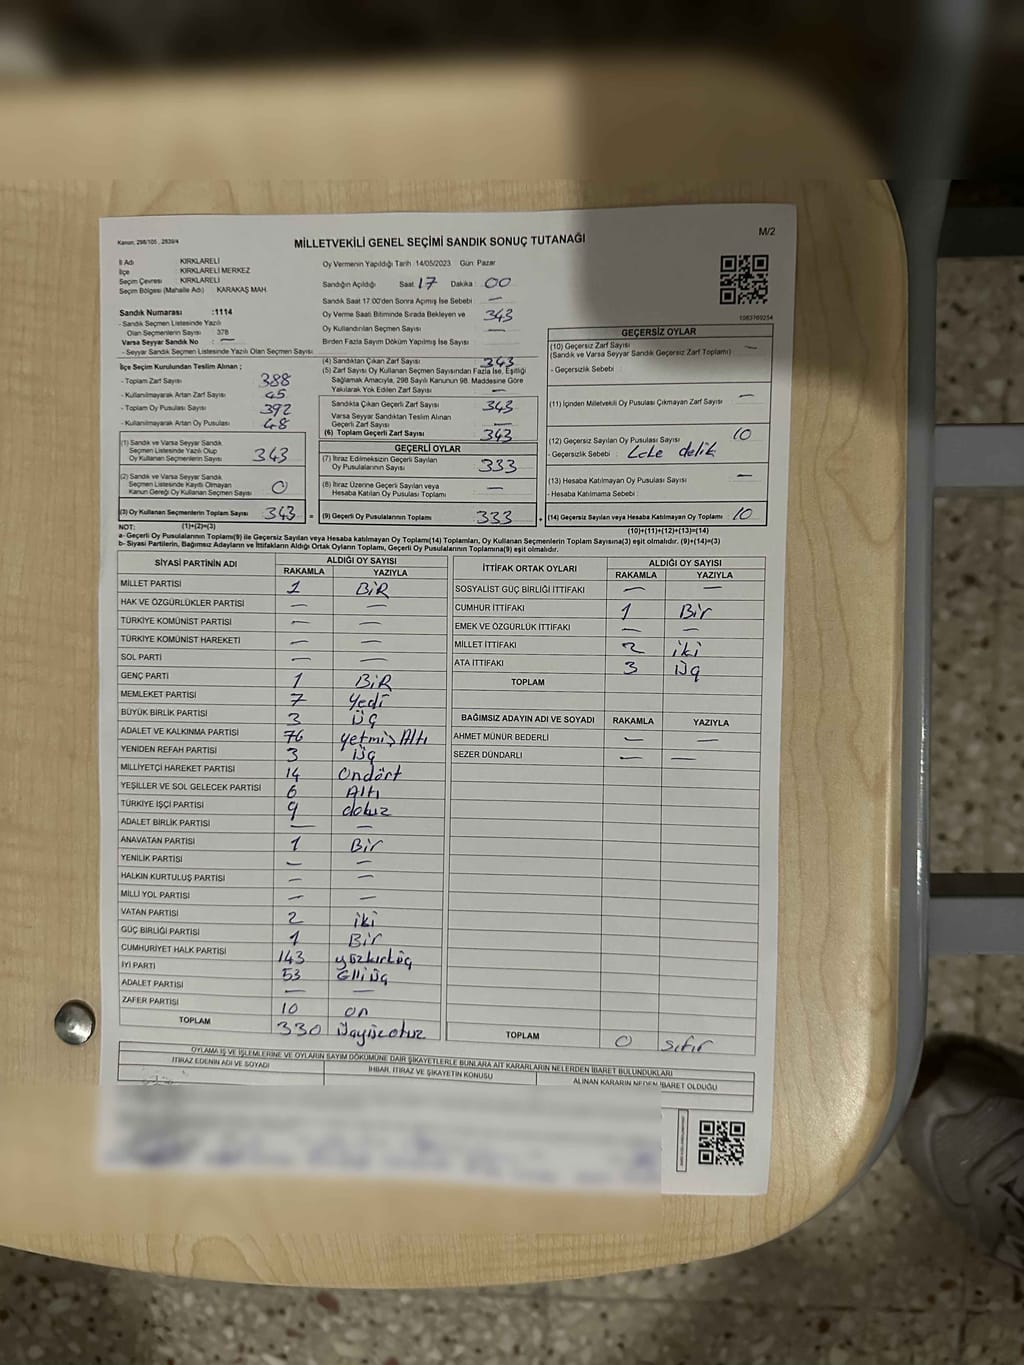 Kanun, 298/105 , 2839/4
MİLLETVEKİLİ GENEL SEÇİMİ SANDIK SONUÇ TUTANAĞI
M/2
İl Adı : KIRKLARELİ
İlçe : KIRKLARELİ MERKEZ
Seçim Çevresi : KIRKLARELİ
Seçim Bölgesi (Mahalle Adı) : KARAKAŞ MAH.
Sandık Numarası :1114
- Sandık Seçmen Listesinde Yazılı
Olan Seçmenlerin Sayısı 378
Varsa Seyyar Sandık No : —
- Seyyar Sandık Seçmen Listesinde Yazılı Olan Seçmen Sayısı
Oy Vermenin Yapıldığı Tarih :14/05/2023 Gün: Pazar
Sandığın Açıldığı Saat: 17 Dakika : 00
Sandık Saat 17:00'den Sonra Açmış İse Sebebi : —
Oy Verme Saati Bitiminde Sırada Bekleyen ve 343
Oy Kullandırılan Seçmen Sayısı : —
Birden Fazla Sayım Döküm Yapılmış İse Sayısı :
1083769254
İlçe Seçim Kurulundan Teslim Alınan ;
- Toplam Zarf Sayısı 388
- Kullanılmayarak Artan Zarf Sayısı 45
- Toplam Oy Pusulası Sayısı 392
- Kullanılmayarak Artan Oy Pusulası 48
(1) Sandık ve Varsa Seyyar Sandık
Seçmen Listesinde Yazılı Olup
Oy Kullanan Seçmenlerin Sayısı 343
(2) Sandık ve Varsa Seyyar Sandık
Seçmen Listesinde Kayıtlı Olmayan
Kanun Gereği Oy Kullanan Seçmen Sayısı 0
(3) Oy Kullanan Seçmenlerin Toplam Sayısı 343 =
(4) Sandıktan Çıkan Zarf Sayısı 343
(5) Zarf Sayısı Oy Kullanan Seçmen Sayısından Fazla İse, Eşitliği
Sağlamak Amacıyla, 298 Sayılı Kanunun 98. Maddesine Göre
Yakılarak Yok Edilen Zarf Sayısı —
Sandıkta Çıkan Geçerli Zarf Sayısı 343
Varsa Seyyar Sandıktan Teslim Alınan
Geçerli Zarf Sayısı —
(6) Toplam Geçerli Zarf Sayısı 343
GEÇERLİ OYLAR
(7) İtiraz Edilmeksizin Geçerli Sayılan
Oy Pusulalarının Sayısı 333
(8) İtiraz Üzerine Geçerli Sayılan veya
Hesaba Katılan Oy Pusulası Toplamı —
(9) Geçerli Oy Pusulalarının Toplamı 333 +
GEÇERSİZ OYLAR
(10) Geçersiz Zarf Sayısı —
(Sandık ve Varsa Seyyar Sandık Geçersiz Zarf Toplamı)
- Geçersizlik Sebebi
(11) İçinden Milletvekili Oy Pusulası Çıkmayan Zarf Sayısı —
(12) Geçersiz Sayılan Oy Pusulası Sayısı 10
- Geçersizlik Sebebi : Leke delik
(13) Hesaba Katılmayan Oy Pusulası Sayısı —
- Hesaba Katılmama Sebebi :
(14) Geçersiz Sayılan veya Hesaba Katılmayan Oy Toplamı 10
NOT: (1)+(2)=(3) (10)+(11)+(12)+(13)=(14)
a- Geçerli Oy Pusulalarının Toplamı(9) ile Geçersiz Sayılan veya Hesaba katılmayan Oy Toplamı(14) Toplamları, Oy Kullanan Seçmenlerin Toplam Sayısına(3) eşit olmalıdır. (9)+(14)=(3)
b- Siyasi Partilerin, Bağımsız Adayların ve İttifakların Aldığı Ortak Oyların Toplamı, Geçerli Oy Pusulalarının Toplamına(9) eşit olmalıdır.
SİYASİ PARTİNİN ADI ALDIĞI OY SAYISI
RAKAMLA YAZIYLA
MİLLET PARTİSİ 1 BİR
HAK VE ÖZGÜRLÜKLER PARTİSİ — —
TÜRKİYE KOMÜNİST PARTİSİ — —
TÜRKİYE KOMÜNİST HAREKETİ — —
SOL PARTİ — —
GENÇ PARTİ 1 BİR
MEMLEKET PARTİSİ 7 Yedi
BÜYÜK BİRLİK PARTİSİ 3 ÜÇ
ADALET VE KALKINMA PARTİSİ 76 Yetmiş Altı
YENİDEN REFAH PARTİSİ 3 Üç
MİLLİYETÇİ HAREKET PARTİSİ 14 Ondört
YEŞİLLER VE SOL GELECEK PARTİSİ 6 Altı
TÜRKİYE İŞÇİ PARTİSİ 9 dokuz
ADALET BİRLİK PARTİSİ — —
ANAVATAN PARTİSİ 1 Bir
YENİLİK PARTİSİ — —
HALKIN KURTULUŞ PARTİSİ — —
MİLLİ YOL PARTİSİ — —
VATAN PARTİSİ 2 iki
GÜÇ BİRLİĞİ PARTİSİ 1 Bir
CUMHURİYET HALK PARTİSİ 143 yüzkırküç
İYİ PARTİ 53 Elliüç
ADALET PARTİSİ — —
ZAFER PARTİSİ 10 on
TOPLAM 330 Üçyüzotuz
İTTİFAK ORTAK OYLARI ALDIĞI OY SAYISI
RAKAMLA YAZIYLA
SOSYALİST GÜÇ BİRLİĞİ İTTİFAKI — —
CUMHUR İTTİFAKI 1 Bir
EMEK VE ÖZGÜRLÜK İTTİFAKI — —
MİLLET İTTİFAKI 2 iki
ATA İTTİFAKI 3 Üç
TOPLAM
BAĞIMSIZ ADAYIN ADI VE SOYADI RAKAMLA YAZIYLA
AHMET MÜNÜR BEDERLİ — —
SEZER DÜNDARLI — —
TOPLAM 0 sıfır
OYLAMA İŞ VE İŞLEMLERİNE VE OYLARIN SAYIM DÖKÜMÜNE DAİR ŞİKAYETLERLE BUNLARA AİT KARARLARIN NELERDEN İBARET BULUNDUKLARI
İTİRAZ EDENİN ADI VE SOYADI İHBAR, İTİRAZ VE ŞİKAYETİN KONUSU ALINAN KARARIN NEDEN İBARET OLDUĞU